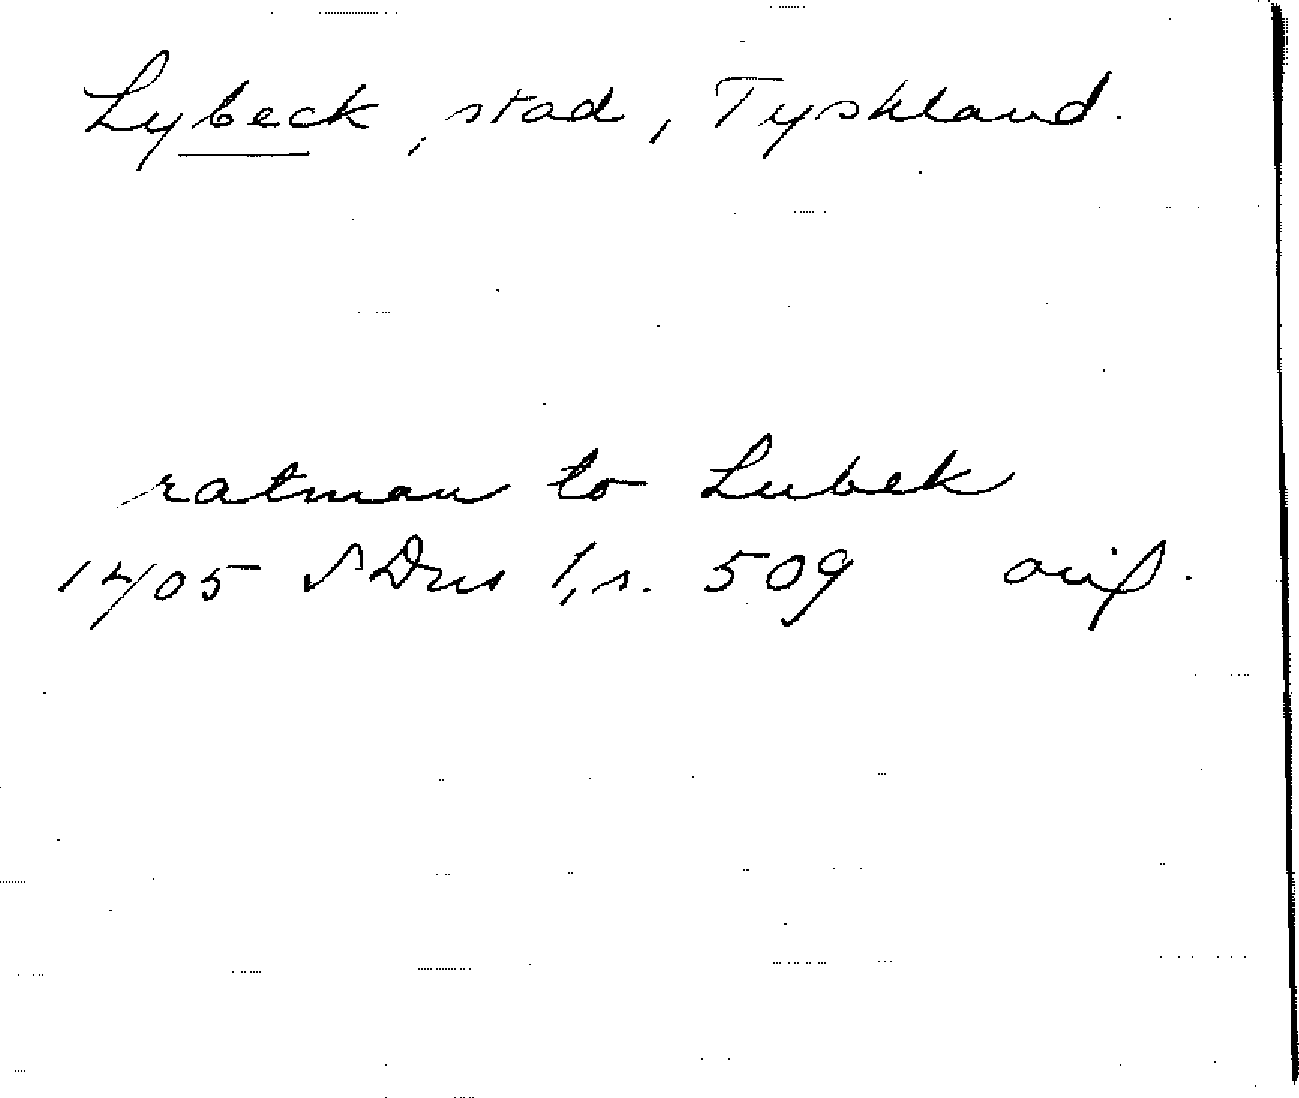 Lybeck, stad, Tyskland.
ratman to Lubek
1405 SDns 1, s. 509 avif.